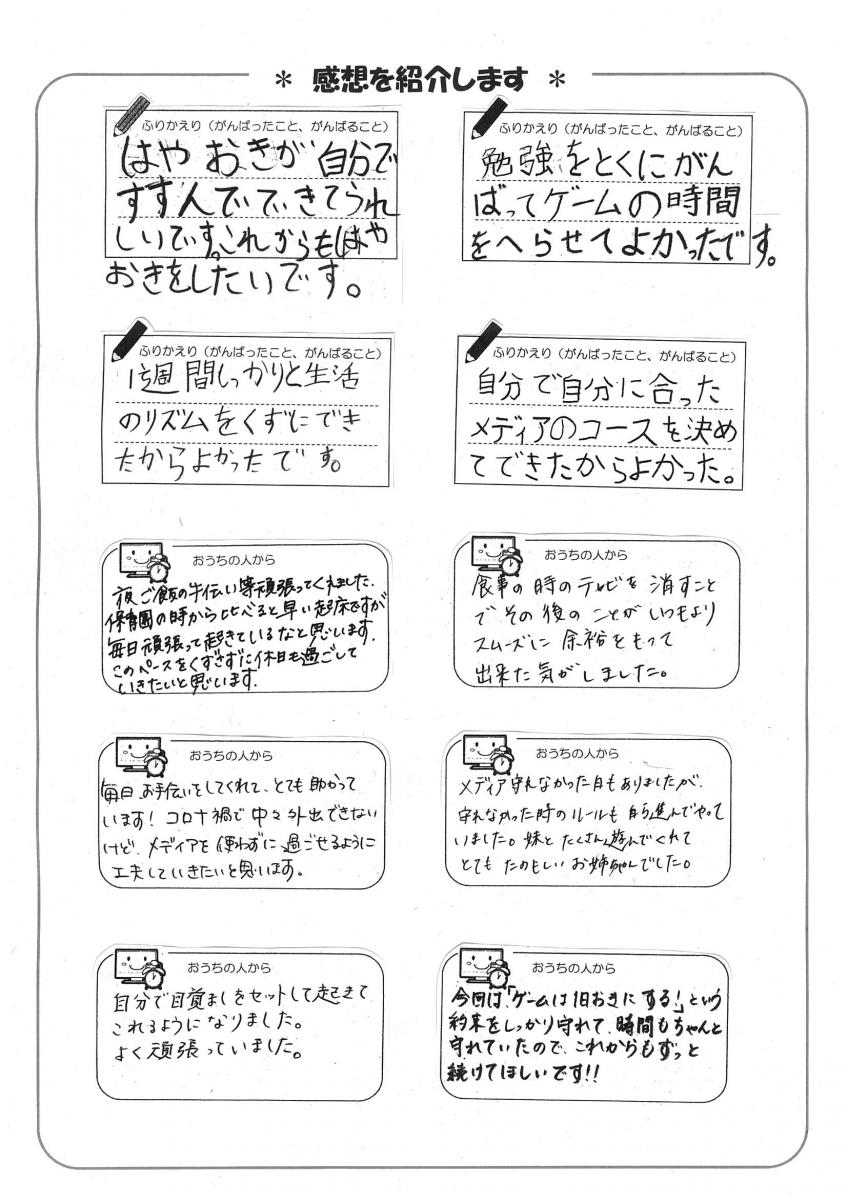 ＊ 感想を紹介します ＊
ふりかえり（がんばったこと、がんばること）
はやおきが自分で
すすんでできてうれ
しいです。これからもはや
おきをしたいです。
ふりかえり（がんばったこと、がんばること）
勉強をとくにがん
ばってゲームの時間
をへらせてよかったです。
ふりかえり（がんばったこと、がんばること）
1週間しっかりと生活
のリズムをくずにでき
たからよかったです。
ふりかえり（がんばったこと、がんばること）
自分で自分に合った
メディアのコースを決め
てできたからよかった。
おうちの人から
夜ご飯の手伝い等頑張ってくれました。
保育園の時から比べると早い起床ですが
毎日頑張って起きているなと思います。
このペースをくずさずに休日も過ごして
いきたいと思います。
おうちの人から
食事の時のテレビを消すこと
でその後のことがいつもより
スムーズに余裕をもって
出来た気がしました。
おうちの人から
毎日、お手伝いをしてくれて、とても助かって
います！コロナ禍で中々外出できない
けど、メディアを使わずに過ごせるように
工夫していきたいと思います。
おうちの人から
メディア守れなかった日もありましたが、
守れなかった時のルールも自ら進んでやって
いました。妹とたくさん遊んでくれて
とてもたのもしいお姉ちゃんでした。
おうちの人から
自分で目覚ましをセットして起きて
これるようになりました。
よく頑張っていました。
おうちの人から
今回は、「ゲームは1日おきにする！」という
約束をしっかり守れて、時間もちゃんと
守れていたので、これからもずっと
続けてほしいです!!